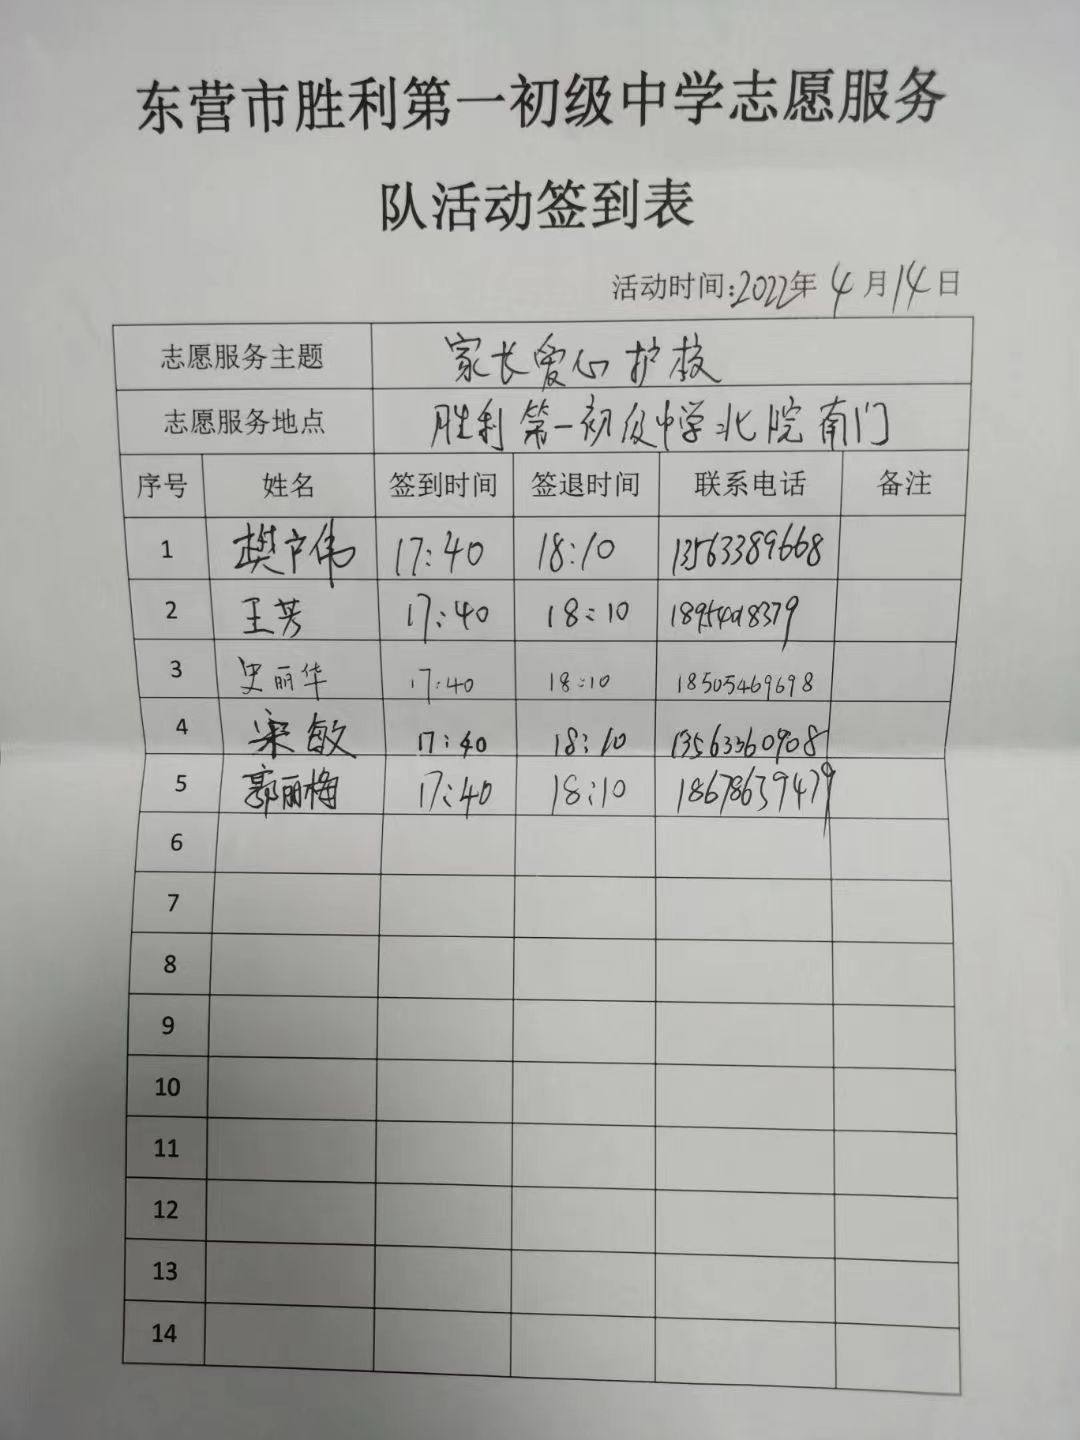 东营市胜利第一初级中学志愿服务
队活动签到表
活动时间:2022年4月14日
志愿服务主题 家长爱心护校
志愿服务地点 胜利第一初级中学北院南门
序号 姓名 签到时间 签退时间 联系电话 备注
1 樊户伟 17:40 18:10 13563389668
2 王芳 17:40 18:10
3 史丽华 17:40 18:10 18505469698
4 宋敏 17:40 18:10 13563360908
5 郭丽梅 17:40 18:10 18678639479
6
7
8
9
10
11
12
13
14